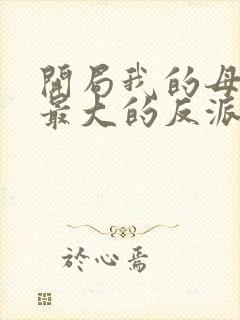 開局我的母
最大的反派
於心焉